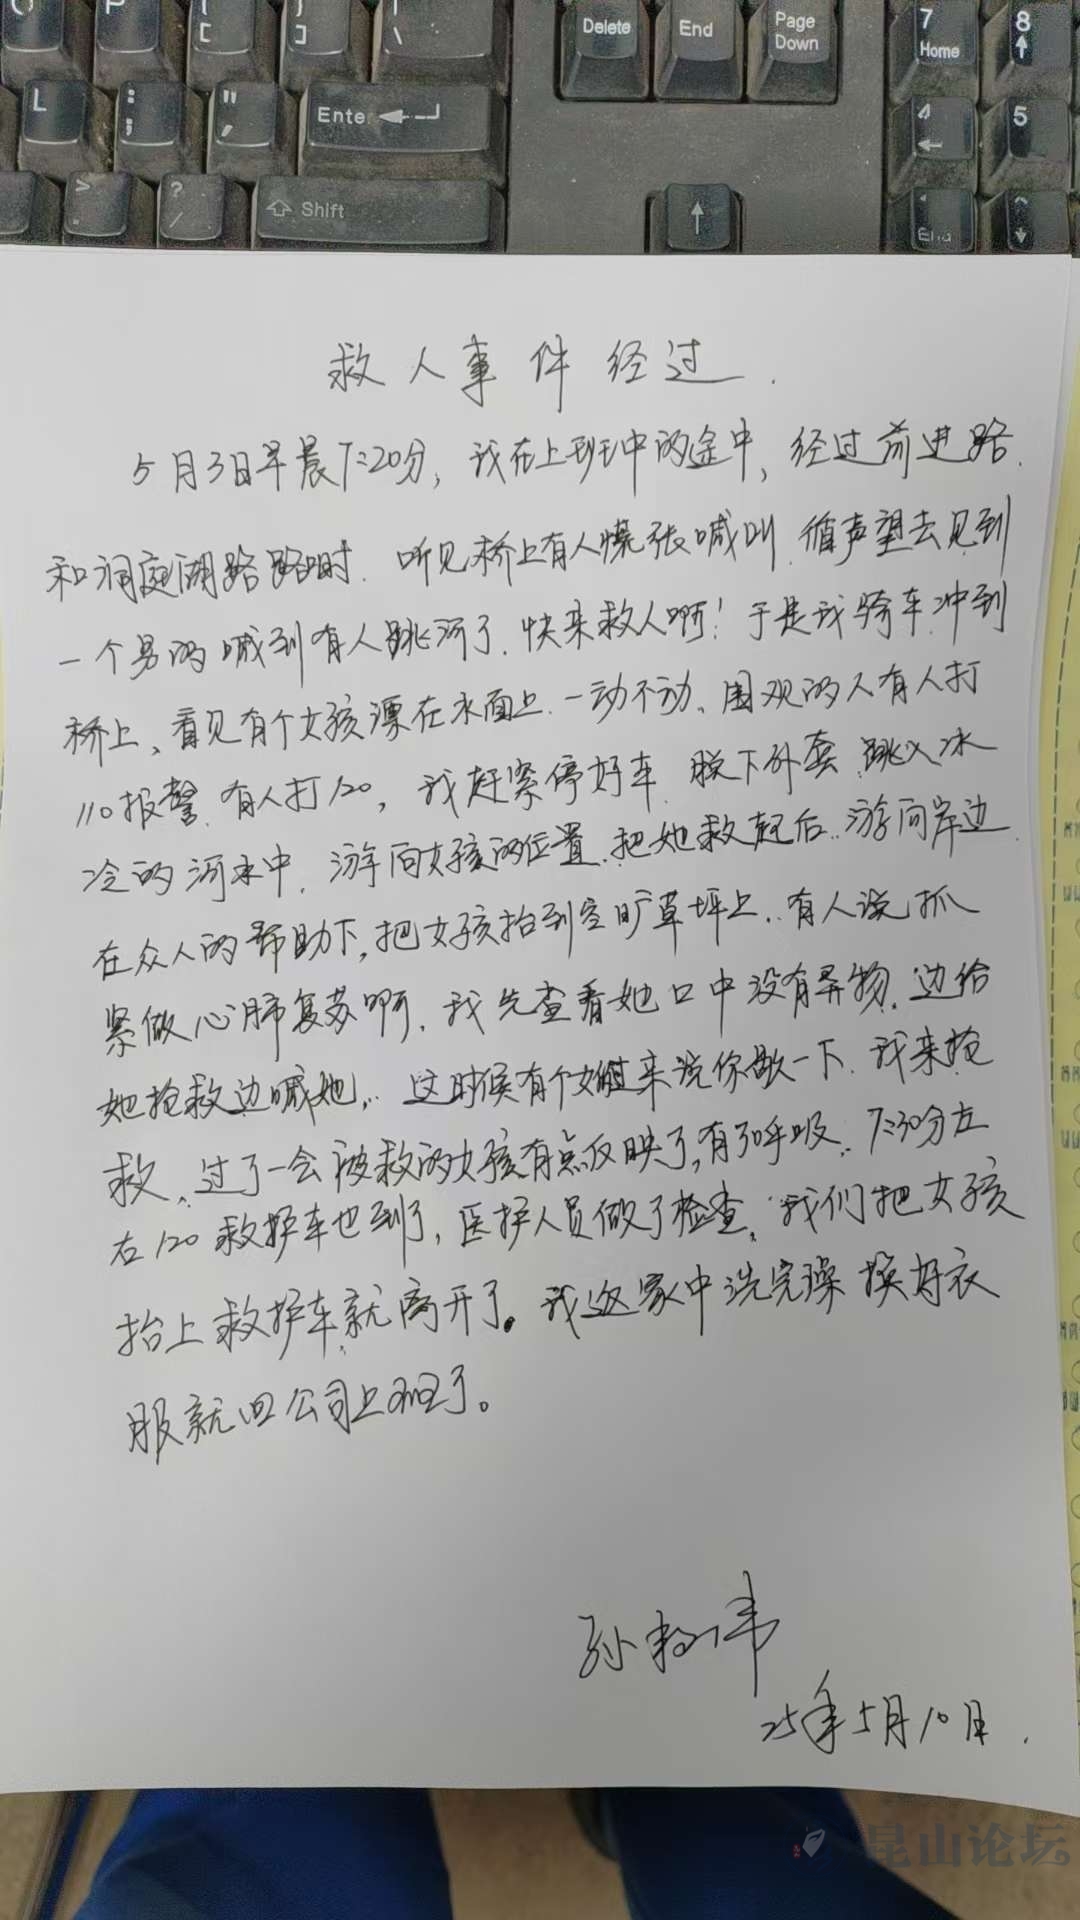 P
{
[
}
]
|
\
Delete
End
Page
Down
7
Home
8
L
:
;
"
,
Enter
4
5
>
.
?
/
Shift
End
救人事件经过.
5月3日早晨7:20分，我在上班中的途中，经过前进路
和洞庭湖路路口时.听见桥上有人慌张喊叫.循声望去见到
一个男的喊到有人跳河了.快来救人啊！于是我骑车冲到
桥上、看见有个女孩漂在水面上.一动不动、围观的人有人打
110报警.有人打120，我赶紧停好车.脱下外套.跳入冰
冷的河水中.游向女孩的位置.把她救起后..游向岸边
在众人的帮助下，把女孩抬到空旷草坪上..有人说抓
紧做心肺复苏啊.我先查看她口中没有异物.边给
她抢救边喊她..这时候有个女 来说你歇一下.我来抢
救、过了一会被救的女孩有点反映了，有了呼吸.7:30分左
右120救护车也到了，医护人员做了检查、我们把女孩
抬上救护车就离开了。我返家中洗完澡换好衣
服就回公司上班了。
孙 伟
25年5月10日.
昆山论坛